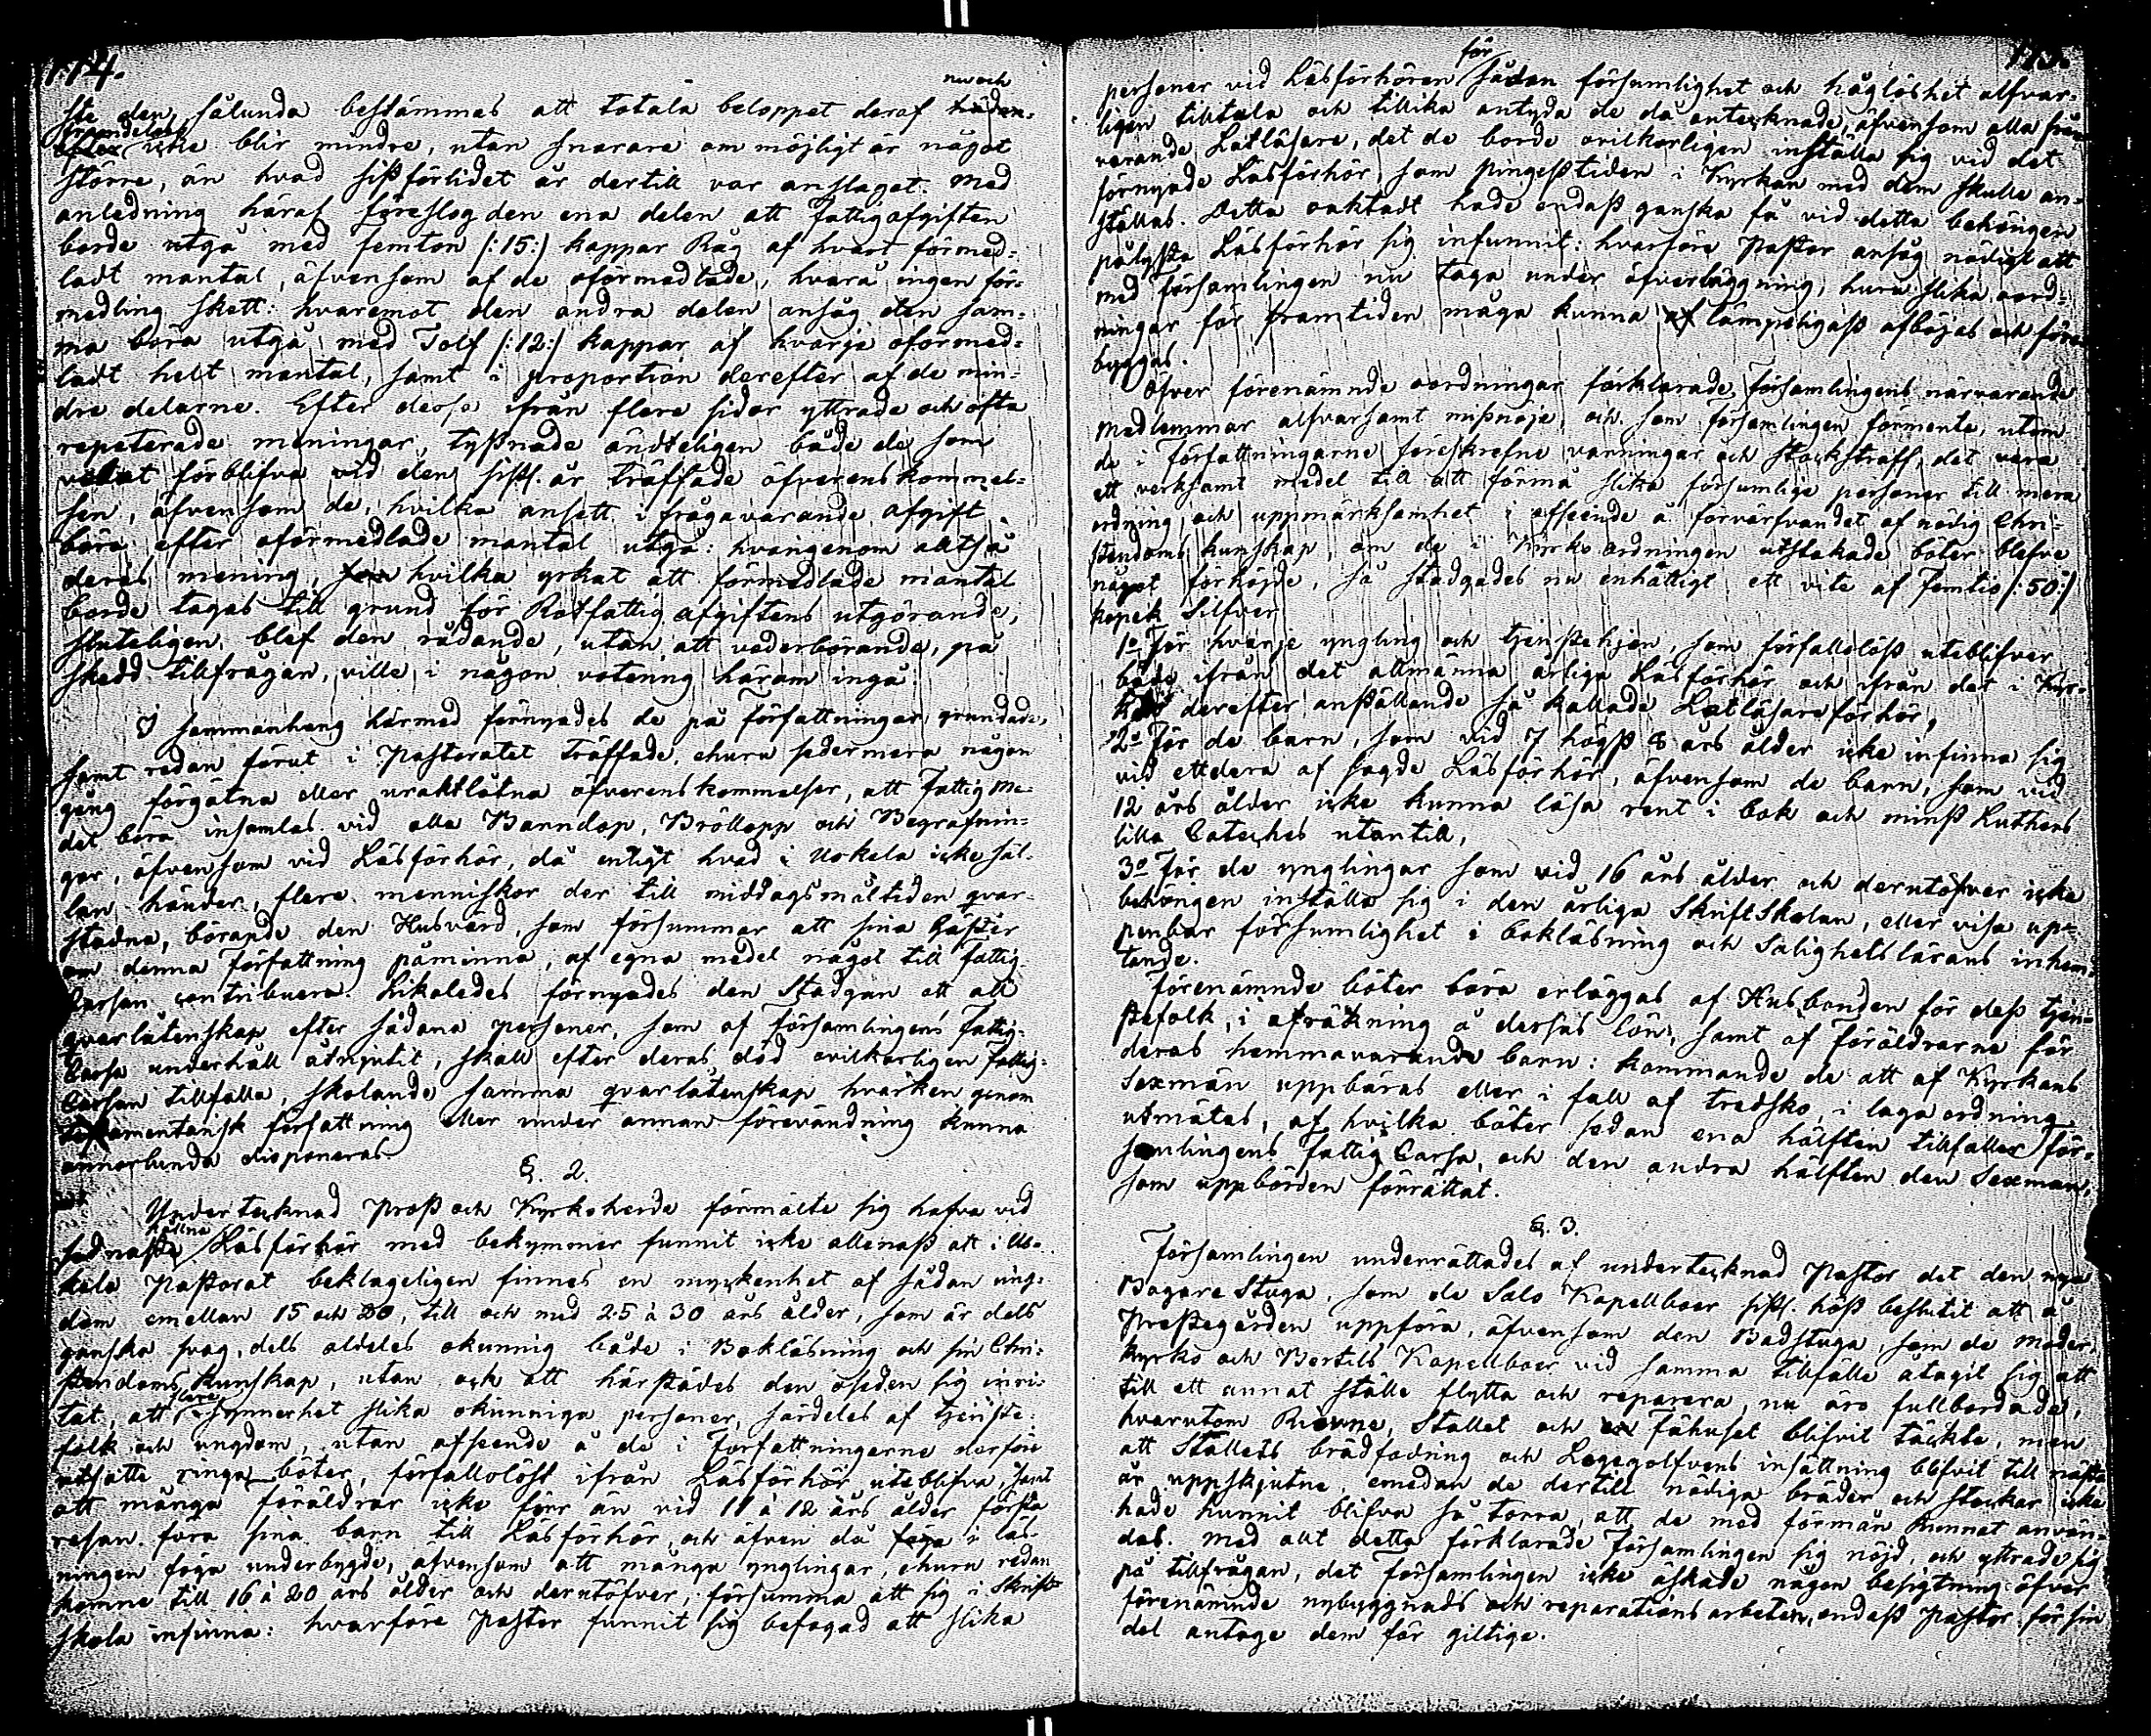 114.
nu och
ste den sålunda bestämmes att totala beloppet deraf hädan-
framdeles
efter icke blir mindre, utan snarare om möjligt är något
större, än hvad sistförlidet år dertill var anslaget. Med
anledning häraf föreslog den ena delen att fattigafgiften
borde utgå med femton /:15:/ kappar Råg af hvart förmed-
ladt mantal, äfvensom af de oförmedlade, hvarå ingen för-
medling skett: hvaremot den andra delen ansåg den sam-
ma böra utgå med Tolf /:12:/ kappar af hvarje oförmed-
ladt helt mantal, samt i proportion derefter af de min-
dre delarne. Efter dessa ifrån flere sidor yttrade och ofta
repeterade meningar, tystnade ändteligen både de som
velat förblifva vid den sistl. år träffade öfverenskommel-
sen, äfvensom de, hvilka ansett i frågavarande afgift
böra efter oförmedlade mantal utgå: hvarigenom alltså
deras mening, hvilka yrkat att förmedlade mantal
borde tagas till grund för Rotfattig afgiftens utgörande,
sluteligen blef den rådande, utan att vederbörande, på
skedd tillfrågan, ville i någon votering härom ingå.
I sammanhang härmed förnyades de på författningar grundade,
samt redan förut i Pastoratet träffade, ehuru sedermera någon
gång förgätna eller uraktlåtna öfverenskommelser, att Fattig Me-
del böra insamlas vid alla Barndop, Bröllopp och Begrafnin-
gar, äfvensom vid Läsförhör, då enligt hvad i Uskela icke säl-
lan händer, flere menniskor der till middagsmåltiden qvar-
stadna, börande den Husvärd, som försummar att sina Gäster
om denna författning påminna, af egna medel något till fattig
Cassan contribuera. Likaledes förnyades den Stadgan att all
qvarlåtenskap efter sådana personer, som af församlingens Fattig-
Cassa underhåll åtnjutit, skall efter deras död ovilkorligen Fattig-
Cassan tillfalla, skolande samma qvarlåtenskap hvarken genom
testamentarisk författning eller under annan förevändning kunna
annorlunda disponeras.
§. 2.
Undertecknad Prost och Kyrkoherde förmälte sig hafva vid
hållne
sednaste Läsförhör med bekymmer funnit icke allenast att i Us-
kela Pastorat beklageligen finnes en myckenhet af sådan ung-
dom emellan 15 och 20, till och med 25 à 30 års ålder, som är dels
ganska svag, dels aldeles okunnig både i Bokläsning och sin Chri-
stendoms kunskap, utan ock att härstädes den oseden sig inri-
flere
tat, att synnerhet slika okunniga personer, särdeles af tjenste-
folk och ungdom, utan afseende å de i Författningerne derföre
utsatte ringa böter, förfallolöst ifrån Läsförhör uteblifva, samt
att många föräldrar icke förr än vid 11 à 12 års ålder första
resan föra sina barn till Läsförhör, och äfven då föga i läs-
ningen föga underbygde, äfvensom att många ynglingar, ehuru redan
komne till 16 à 20 års ålder och derutöfver, försumma att sig i Skrift-
skola infinna: hvarföre Pastor funnit sig befogad att slika
för
personer vid Läsförhören sådan försumlighet och håglöshet alfvar-
ligen tilltala och tillika antyda de då antecknade, äfvensom alla
varande Latläsare, det de borde ovilkorligen inställa sig vid det
förnyade Läsförhör, som Pingesttiden i Kyrkan med dem skulle an-
ställas. Detta oaktadt hade endast ganska få vid detta behörigen
pålysta Läsförhör sig infunnit: hvarföre Pastor ansåg nödigt att
med Församlingen nu taga under öfverläggning, huru slika oord-
ningar för framtiden måga kunna lämpeligast afböjas och före-
byggas.
Öfver förenämnde oordningar förklarade Församlingens närvarande
medlemmar alfvarsamt missnöje, och som församlingen förmente, utom
de i Författningarne föreskrefne varningar och stockstraff, det vara
ett verksamt medel till att förmå slika försumlige personer till mera
ordning och uppmärksamhet i afseende å förvärfvandet af nödig Chri-
stendoms kunskap, om de i Kyrko ordningen utstakade böter blefve
något förhöjde, så stadgades nu enhälligt ett vite af Femtio /:50:/
kopek Silfver
1o För hvarje yngling och tjenstehjon, som förfallolöst uteblifver
både ifrån det allmänna årliga Läsförhör och ifrån det i Kyr-
kan derefter anställande så kallade Latläsareförhör,
2o För de barn, som vid 7 högst 8 års ålder icke infinna sig
vid ettdera af sagde Läsförhör, äfvensom de barn, som vid
12 års ålder icke kunna läsa rent i bok och minst Luthers
lilla Cateches utantill,
3o För de ynglingar som vid 16 års ålder och derutöfver icke
behörigen inställa sig i den årliga SkriftSkolan, eller visa up-
penbar försumlighet i bokläsning och Salighetslärans inhem-
tande.
Förenämnde böter böra erläggas af Husbonden för dess tjen-
stefolk, i afräkning å dersas lön, samt af föräldrarne för
deras hemmavarande barn: kommande de att af Kyrkans
Sexmän uppbäras eller i fall af tredsko, i laga ordning
utmätas, af hvilka böter sedan ena hälften tillfaller för-
samlingens fattig Cassa, och den andra hälften den Sexman,
som uppbörden förrättat.
§. 3.
Församlingen underrättades af undertecknad Pastor det den nya
Bagare Stuga, som de Salo Kapellboer sistl. höst beslutit att å
Prestegården uppföra, äfvensom den Badstuga, som de Moder-
kyrko och Bertils Kapellboer vid samma tillfälle åtagit sig att
till ett annat ställe flytta och reparera, nu äro fullbordade,
hvarutom Rierne, Stallet och Fähuset blifvit täckte, men
att Stallets brädfodring och Logegolfvens insättning blifvit till nästa
år uppskjutne, emedan de dertill nödiga bräder och stockar icke
hade hunnit blifva så torra, att de med förmån kunnat använ-
das. Med allt detta förklarade Församlingen sig nöjd, och yttrade sig
på tillfrågan, det Församlingen icke äskade någon besigtning öfver
förenämnde nybyggnads och reparations arbeten, endast Pastor för sin
del antoge dem för giltige.